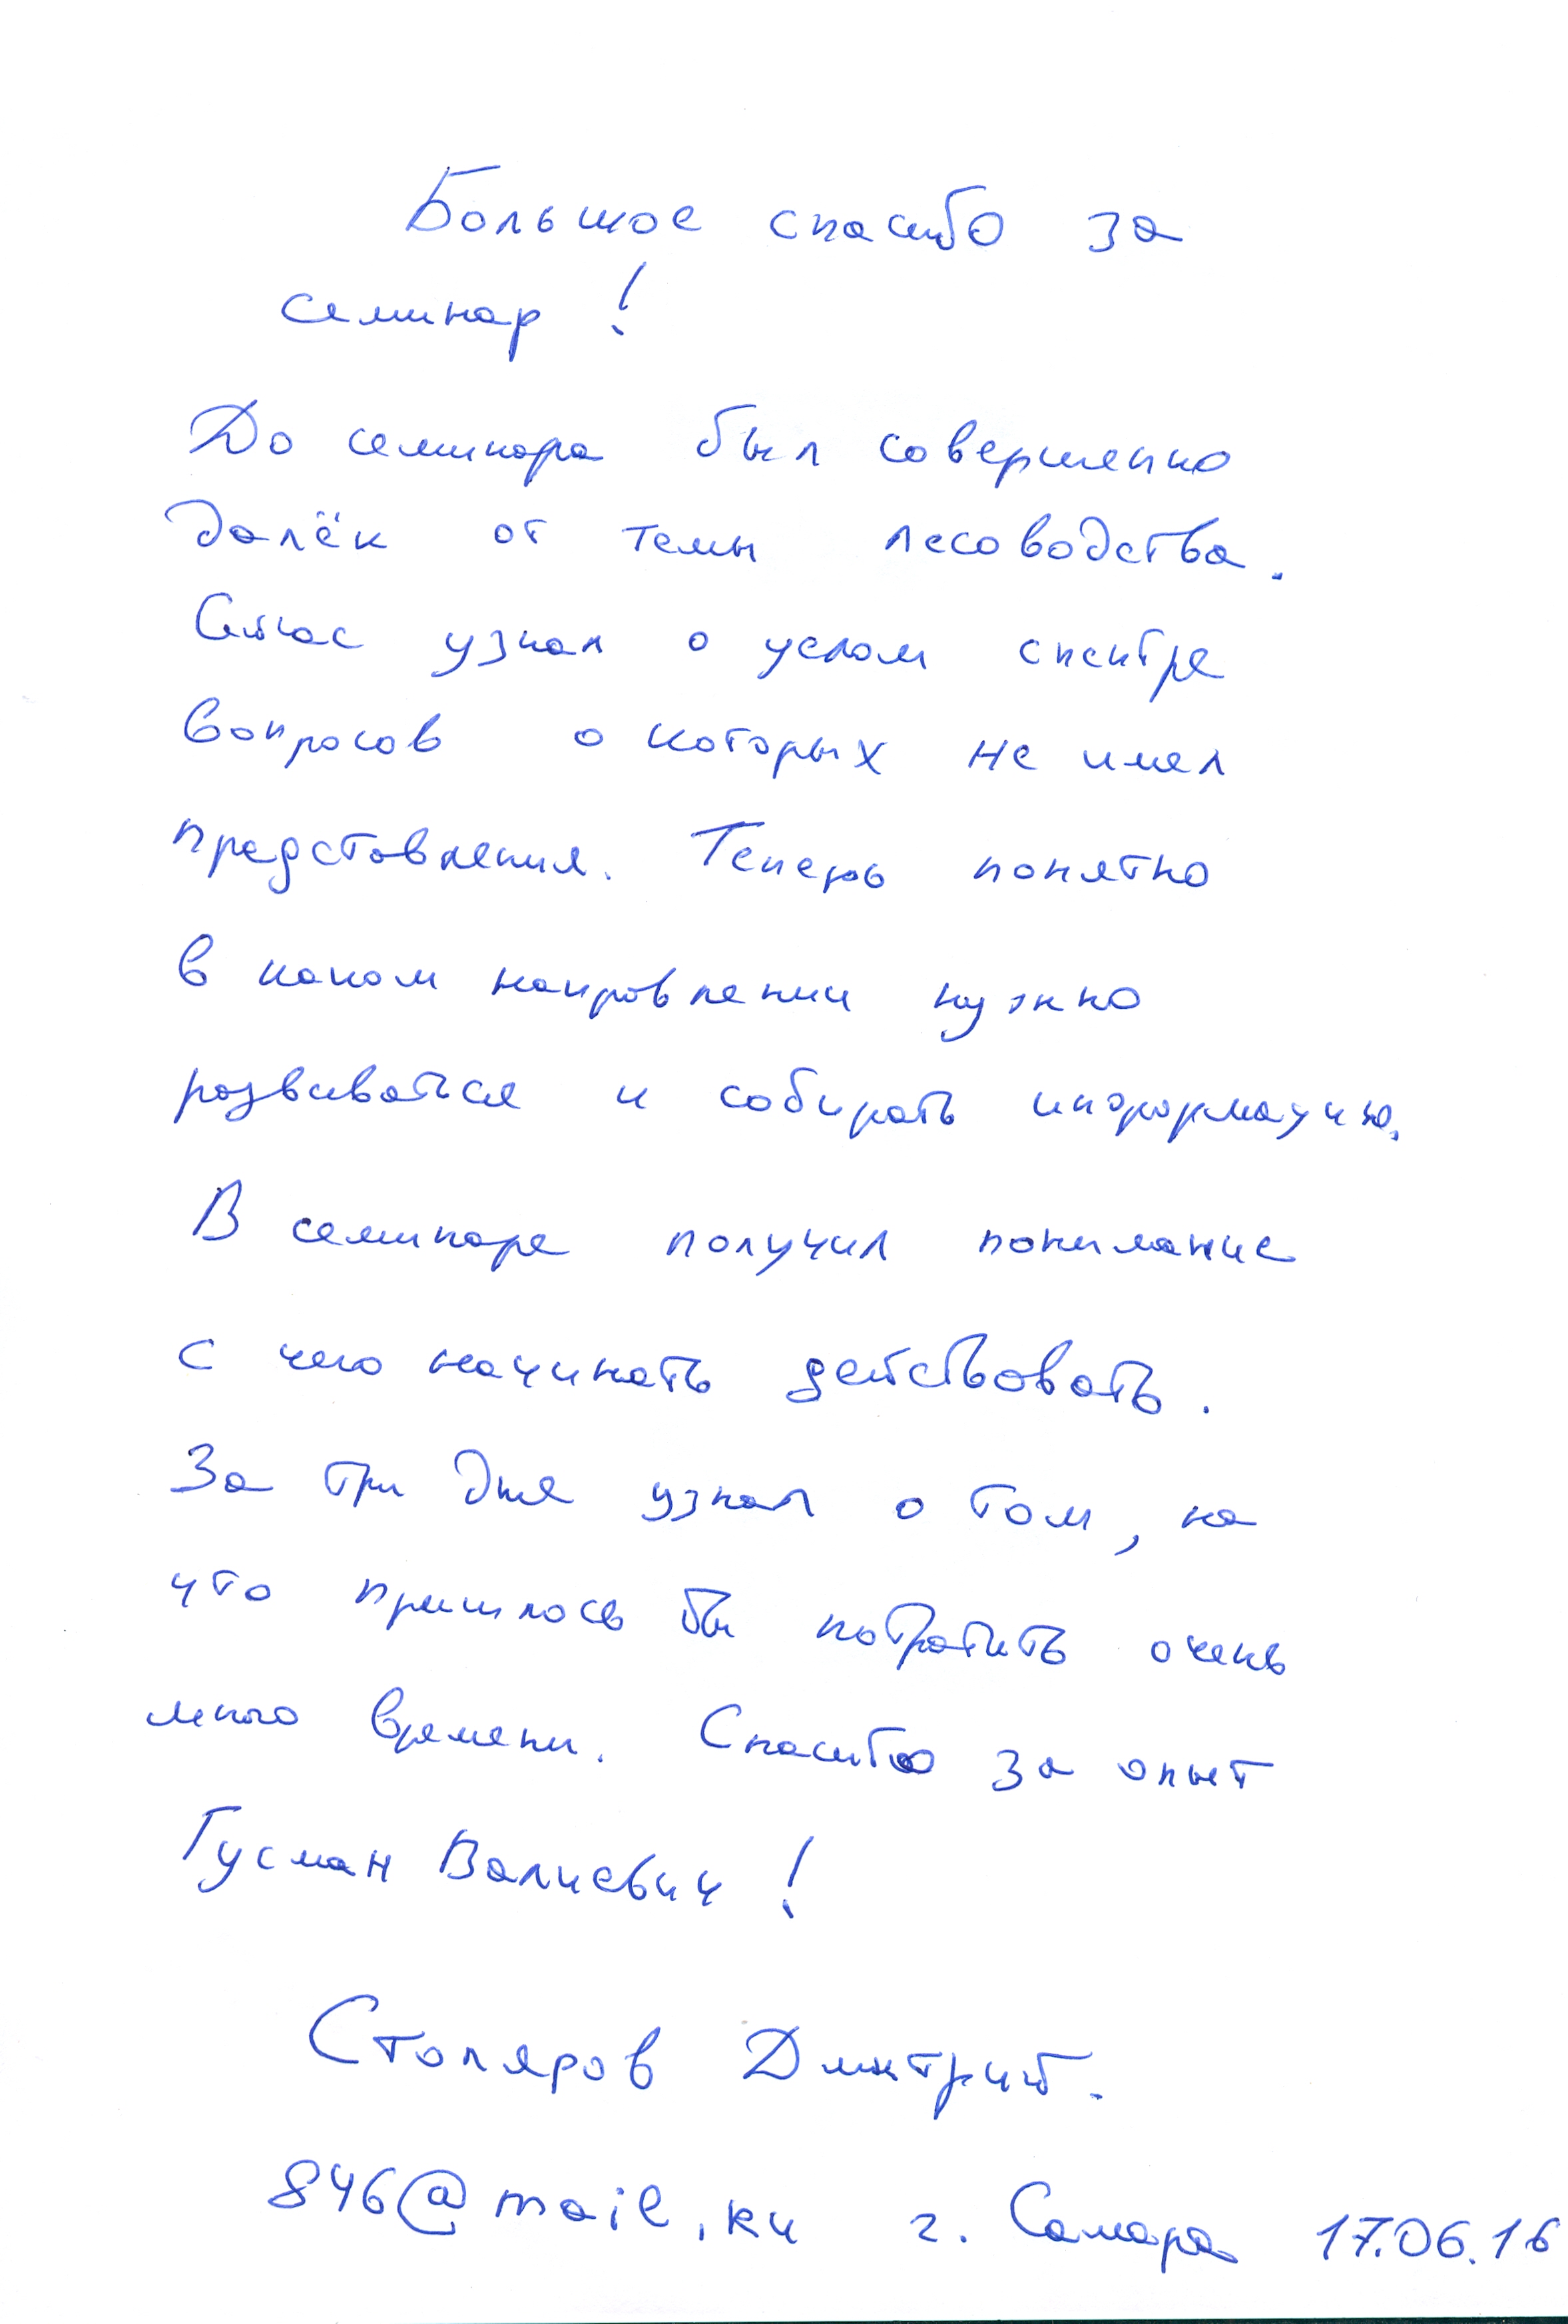 Большое спасибо за
семинар !
До семинара был совершенно
далёк от темы лесоводства.
Сейчас узнал о целом спектре
вопросов о которых не имел
представления. Теперь понятно
в каком направлении нужно
развиваться и собирать информацию.
В семинаре получил понимание
с чего начинать действовать.
За три дня узнал о том, на
что пришлось бы потратить очень
много времени. Спасибо за опыт
Гусман Валиевич !
Столяров Дмитрий.
846@mail.ru г. Самара 17.06.16